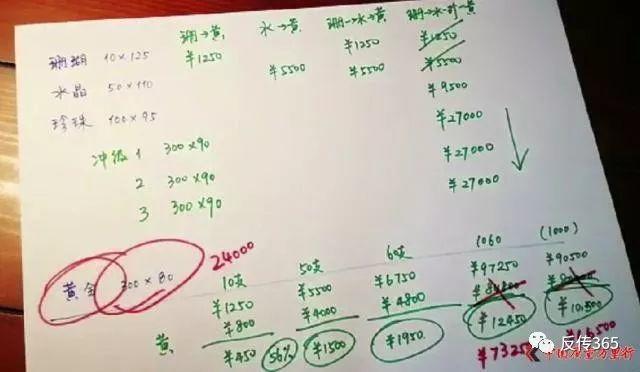 珊→黄 水→黄 珊→水→黄 珊→水→珍→黄
珊瑚 10×125 ¥1250 ¥1250 ¥1250
水晶 50×110 ¥5500 ¥5500 ¥5500
珍珠 100×95 ¥9500
冲级1 300×90 ¥27000
2 300×90 ¥27000
3 300×90 ¥27000
24000
黄金 300×80
10支 50支 60支 1060 (1000)
¥1250 ¥5500 ¥6750 ¥97250 ¥90500
¥800 ¥4000 ¥4800
黄 ¥450 56% ¥1500 ¥1950 ¥12450 ¥10500
¥7325
反传365